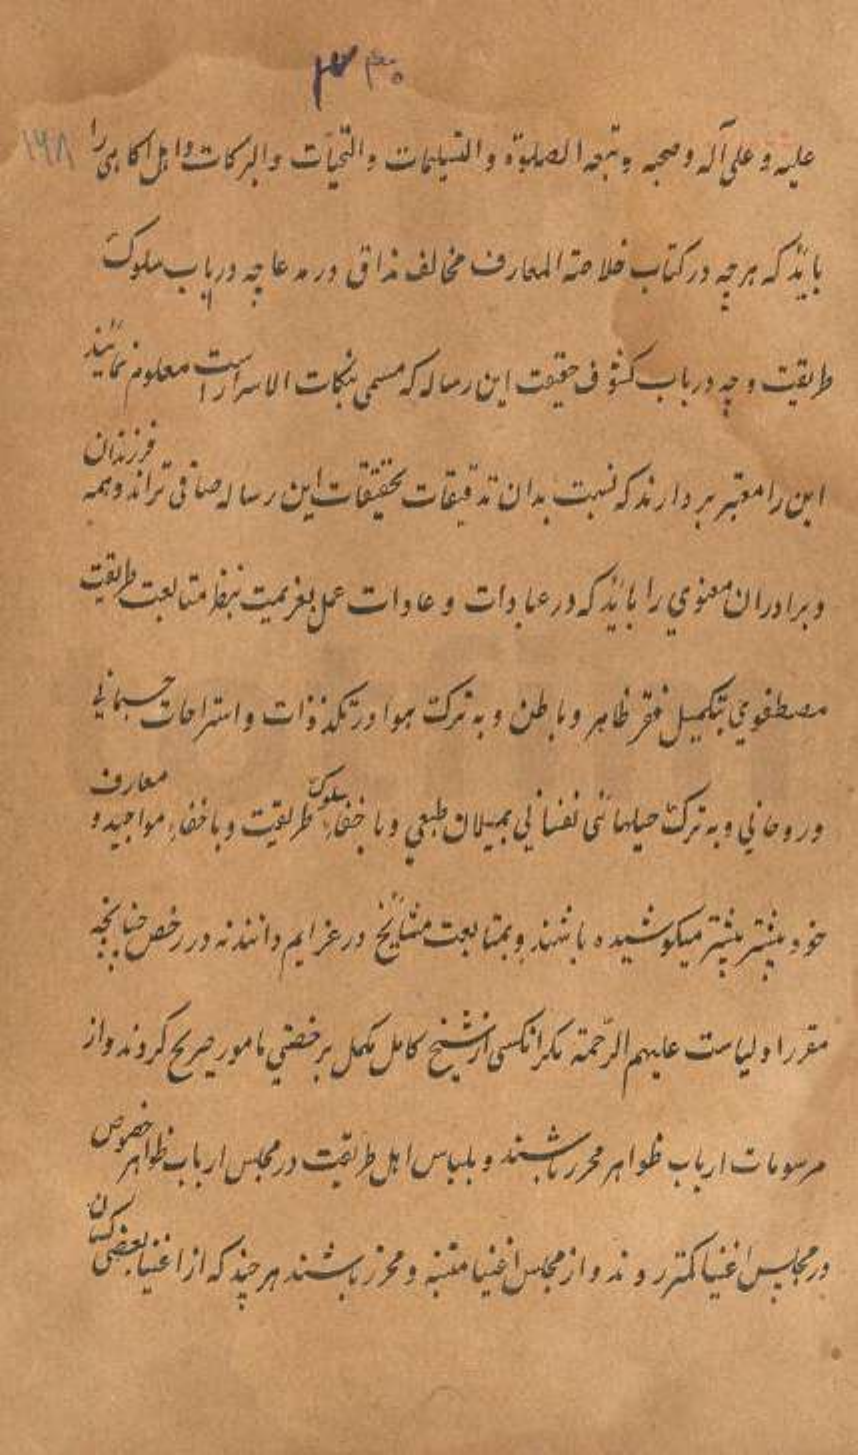 ۱۶۸
علیه و علی آله و صحبه و تبعه الصلوٰة و التسلیمات و التحیات و البرکات و اهل آگاهی را
باید که هرچه در کتاب خلاصة المعارف مخالف مذاق و مدعا چه در باب سلوک
طریقت و چه در باب کشوف حقیقت این رساله که مسمی بنکات الاسرار است معلوم نمایند
این را معتبر بر دارند که نسبت بدان تدقیقات تحقیقات این رساله صافی تر اند و همه فرزندان
و برادران معنوی را باید که در عبادات و عادات عمل بعزیمت بنظر متابعت طریقت
مصطفوی بتکمیل فقر ظاهر و باطن و به ترک هوا در تلذذات و استراحات جسمانی
و روحانی و به ترک حیلهائی نفسانی بمیلان طبعی و باخفاء سلوک طریقت و باخفاء مواجید و معارف
خود بیشتر بیشتر میکوشیده باشند و بمتابعت مشائخ در عزایم دانند نه در رخص چنانچه
مقرر اولیاست علیهم الرحمة مگر انکسی از شیخ کامل مکمل برخصتی مامور صریح گردند و از
مرسومات ارباب ظواهر محرز باشند و بلباس اهل طریقت در مجلس ارباب ظواهر خصوص
در مجلس اغنیا کمتر روند و از مجلس اغنیا متنبه و محرز باشند هر چند که از اغنیا بعضی کسان